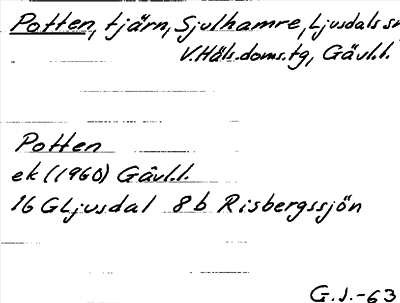 Potten, tjärn, Sjulhamre, Ljusdals sn
V.Häls.doms.tg, Gävl.l.
Potten
ek (1960) Gävl.l.
16 G Ljusdal 8 b Risbergssjön
G.J.-63